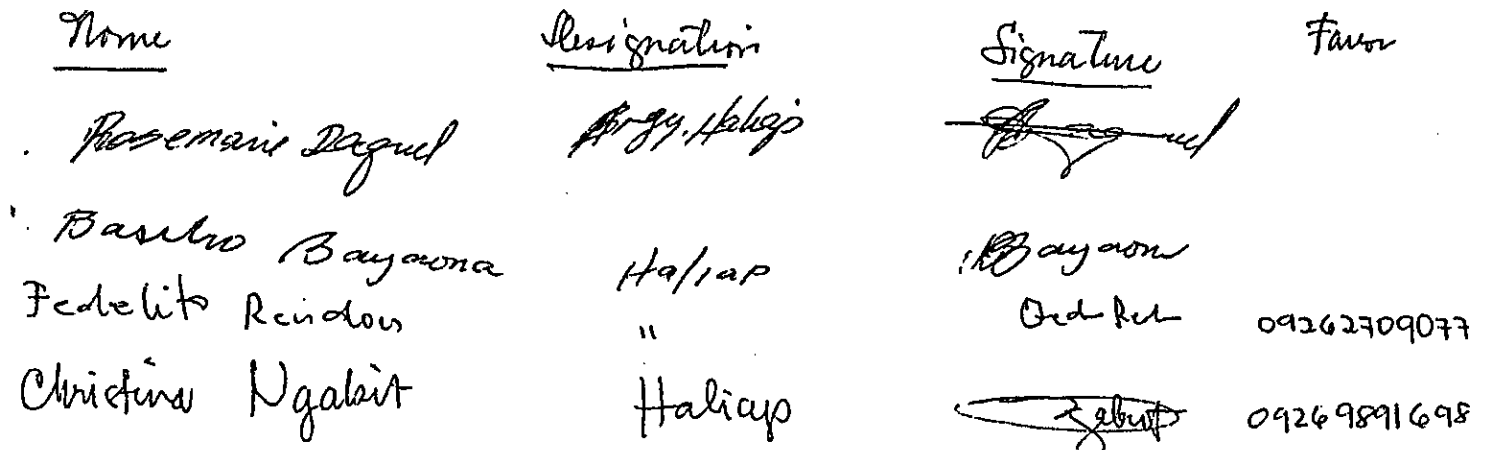 Name Designation Signature Favor
Rosemarie Daguel Brgy. Haliap
Basilio Bayaona Haliap Bayaon
Fedelito Rendon " 09262709077
Christina Ngabit Haliap 09269891698